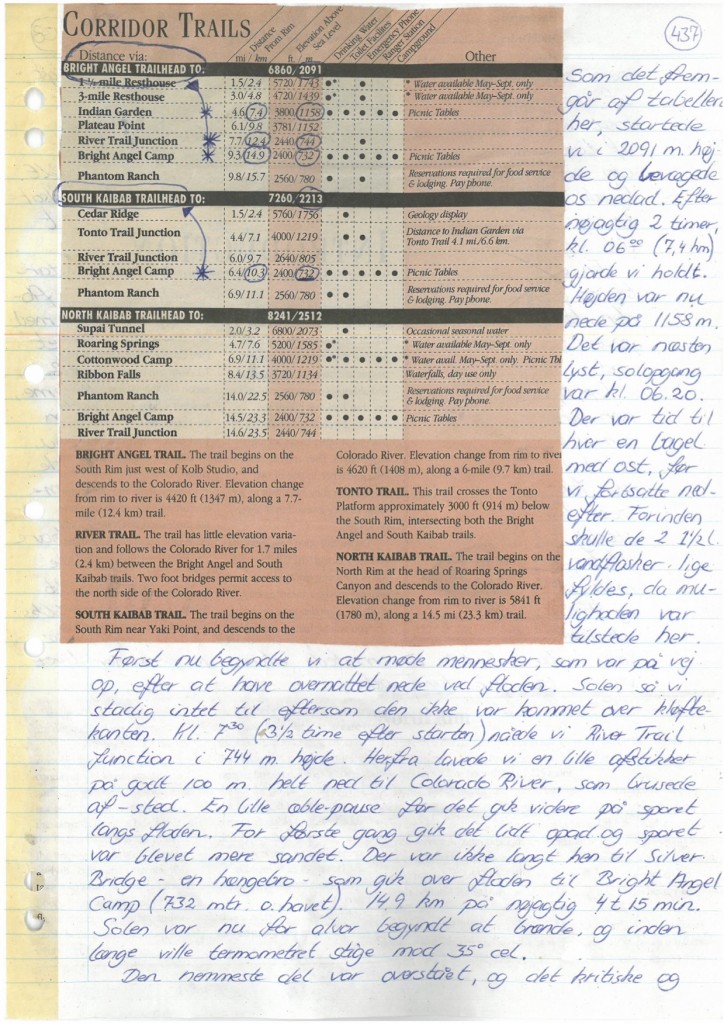 437
CORRIDOR TRAILS
Distance From Rim
Elevation Above Sea Level
Drinking Water
Toilet Facilities
Emergency Phone
Ranger Station
Campground
Distance via: mi / km ft / m Other
BRIGHT ANGEL TRAILHEAD TO: 6860/2091
1 ½ mile Resthouse 1.5/2.4 5720/1743 * Water available May-Sept. only
3-mile Resthouse 3.0/4.8 4720/1439 * Water available May-Sept. only
Indian Garden 4.6/7.4 3800/1158 Picnic Tables
Plateau Point 6.1/9.8 3781/1152
River Trail Junction 7.7/12.4 2440/744
Bright Angel Camp 9.3/14.9 2400/732 Picnic Tables
Phantom Ranch 9.8/15.7 2560/780 Reservations required for food service
& lodging. Pay phone.
SOUTH KAIBAB TRAILHEAD TO: 7260/2213
Cedar Ridge 1.5/2.4 5760/1756 Geology display
Tonto Trail Junction 4.4/7.1 4000/1219 Distance to Indian Garden via
Tonto Trail 4.1 mi./6.6 km.
River Trail Junction 6.0/9.7 2640/805
Bright Angel Camp 6.4/10.3 2400/732 Picnic Tables
Phantom Ranch 6.9/11.1 2560/780 Reservations required for food service
& lodging. Pay phone.
NORTH KAIBAB TRAILHEAD TO: 8241/2512
Supai Tunnel 2.0/3.2 6800/2073 Occasional seasonal water
Roaring Springs 4.7/7.6 5200/1585 * Water available May-Sept. only
Cottonwood Camp 6.9/11.1 4000/1219 * Water avail. May-Sept. only. Picnic Tbl
Ribbon Falls 8.4/13.5 3720/1134 Waterfalls, day use only
Phantom Ranch 14.0/22.5 2560/780 Reservations required for food service
& lodging. Pay phone.
Bright Angel Camp 14.5/23.3 2400/732 Picnic Tables
River Trail Junction 14.6/23.5 2440/744
BRIGHT ANGEL TRAIL. The trail begins on the
South Rim just west of Kolb Studio, and
descends to the Colorado River. Elevation change
from rim to river is 4420 ft (1347 m), along a 7.7-
mile (12.4 km) trail.
RIVER TRAIL. The trail has little elevation varia-
tion and follows the Colorado River for 1.7 miles
(2.4 km) between the Bright Angel and South
Kaibab trails. Two foot bridges permit access to
the north side of the Colorado River.
SOUTH KAIBAB TRAIL. The trail begins on the
South Rim near Yaki Point, and descends to the
Colorado River. Elevation change from rim to river
is 4620 ft (1408 m), along a 6-mile (9.7 km) trail.
TONTO TRAIL. This trail crosses the Tonto
Platform approximately 3000 ft (914 m) below
the South Rim, intersecting both the Bright
Angel and South Kaibab trails.
NORTH KAIBAB TRAIL. The trail begins on the
North Rim at the head of Roaring Springs
Canyon and descends to the Colorado River.
Elevation change from rim to river is 5841 ft
(1780 m), along a 14.5 mi (23.3 km) trail.
Som det frem-
går af tabellen
her, startede
vi i 2091 m. høj
de og bevægede
os nedad. Efter
nøjagtig 2 timer,
kl. 06⁰⁰ (7,4 km)
gjorde vi holdt.
Højden var nu
nede på 1158 m.
Det var næsten
lyst, solopgang
var kl. 06.20.
Der var tid til
hver en bagel
med ost, før
vi fortsatte ned-
efter. Forinden
skulle de 2 1½ l.
vandflasker lige
fyldes, da mu-
ligheden var
tilstede her.
Først nu begyndte vi at møde mennesker, som var på vej
op, efter at have overnattet nede ved floden. Solen så vi
stadig intet til eftersom den ikke var kommet over kløfte-
kanten. Kl. 7³⁰ (3½ time efter starten) nåede vi River Trail
Junction i 744 m. højde. Herfra lavede vi en lille afstikker
på godt 100 m. helt ned til Colorado River, som brusede
af-sted. En lille æble-pause før det gik videre på sporet
langs floden. For første gang gik det lidt opad og sporet
var blevet mere sandet. Der var ikke langt hen til Silver
Bridge - en hængebro - som gik over floden til Bright Angel
Camp (732 mtr. o. havet). 14,9 km på nøjagtig 4 t 15 min.
Solen var nu for alvor begyndt at brænde, og inden
længe ville termometret stige mod 35° cel.
Den nemmeste del var overstået, og det kritiske og